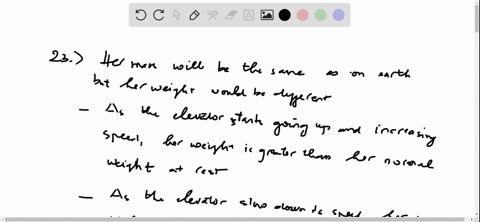 23.) Her mass will be the same as on earth
but her weight would be different
- As the elevator starts going up and increasing
speed, her weight is greater than her normal
weight at rest
- As the elevator slows down its speed